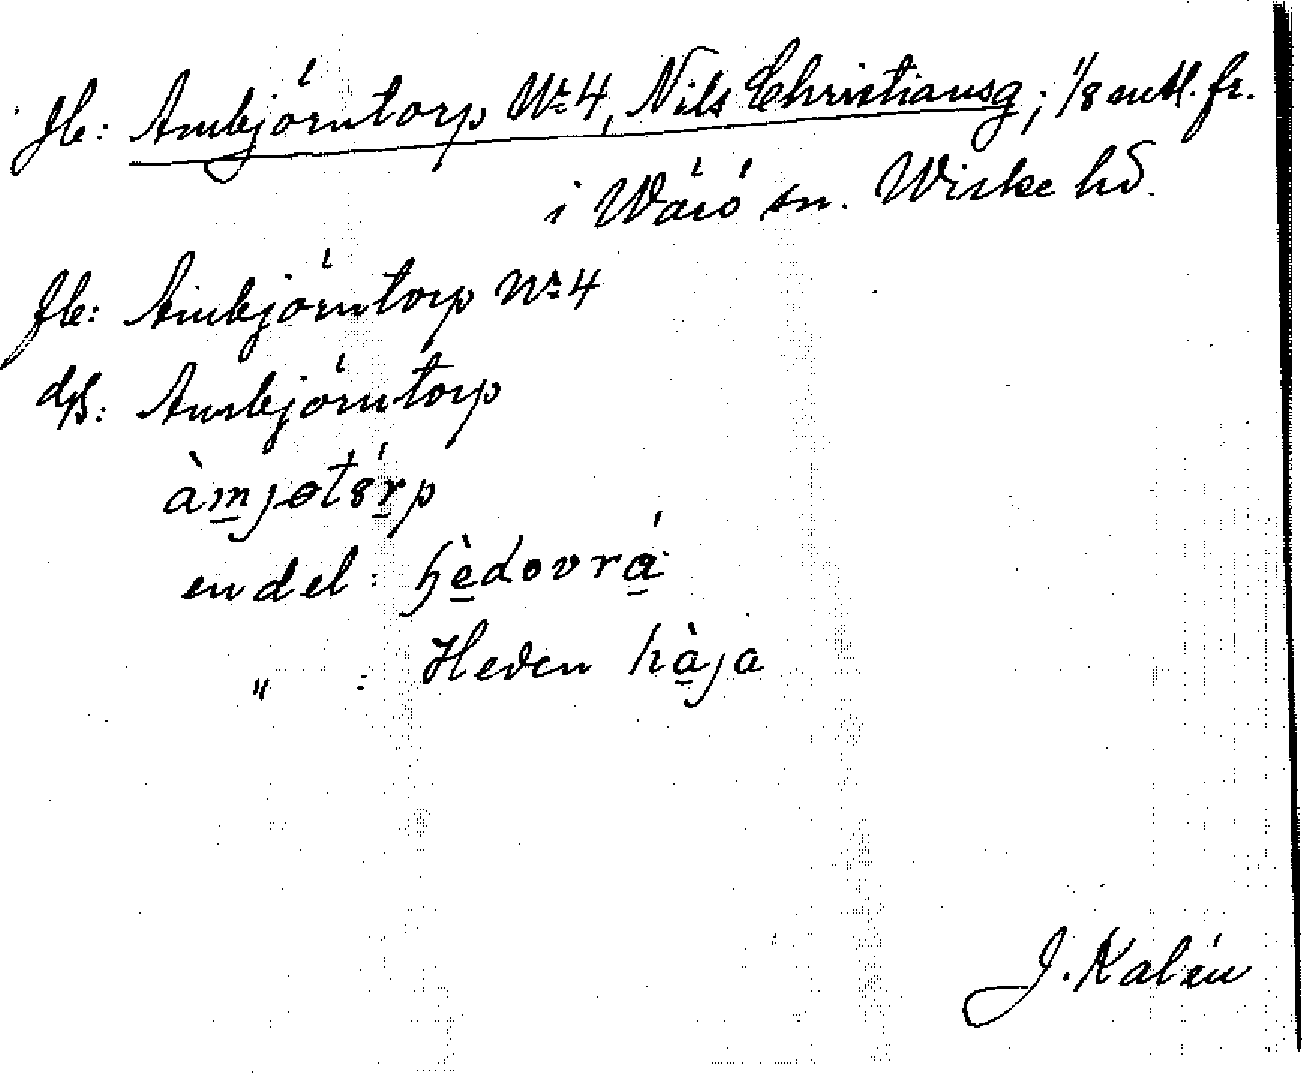 Jb: Ambjörntorp Nr 4, Nils Christiansg; 1/8 mtl. fr.
i Wärö sn. Wiske hd.
Jb: Ambjörntorp Nr 4
dß: Ambjörntorp
àmjɵtɞ́rp
en del: hèdovrá
" : Heden hàja
J. Kalén